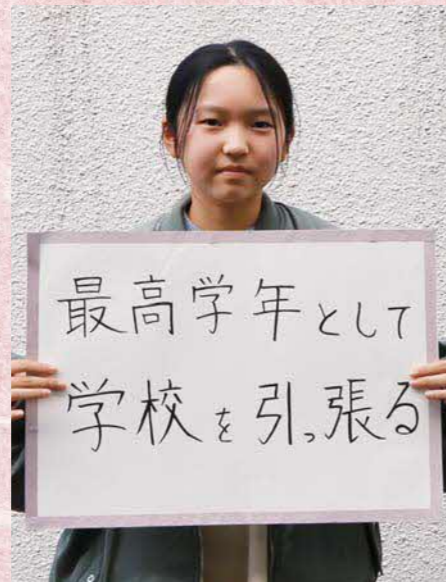 最高学年として
学校を引っ張る